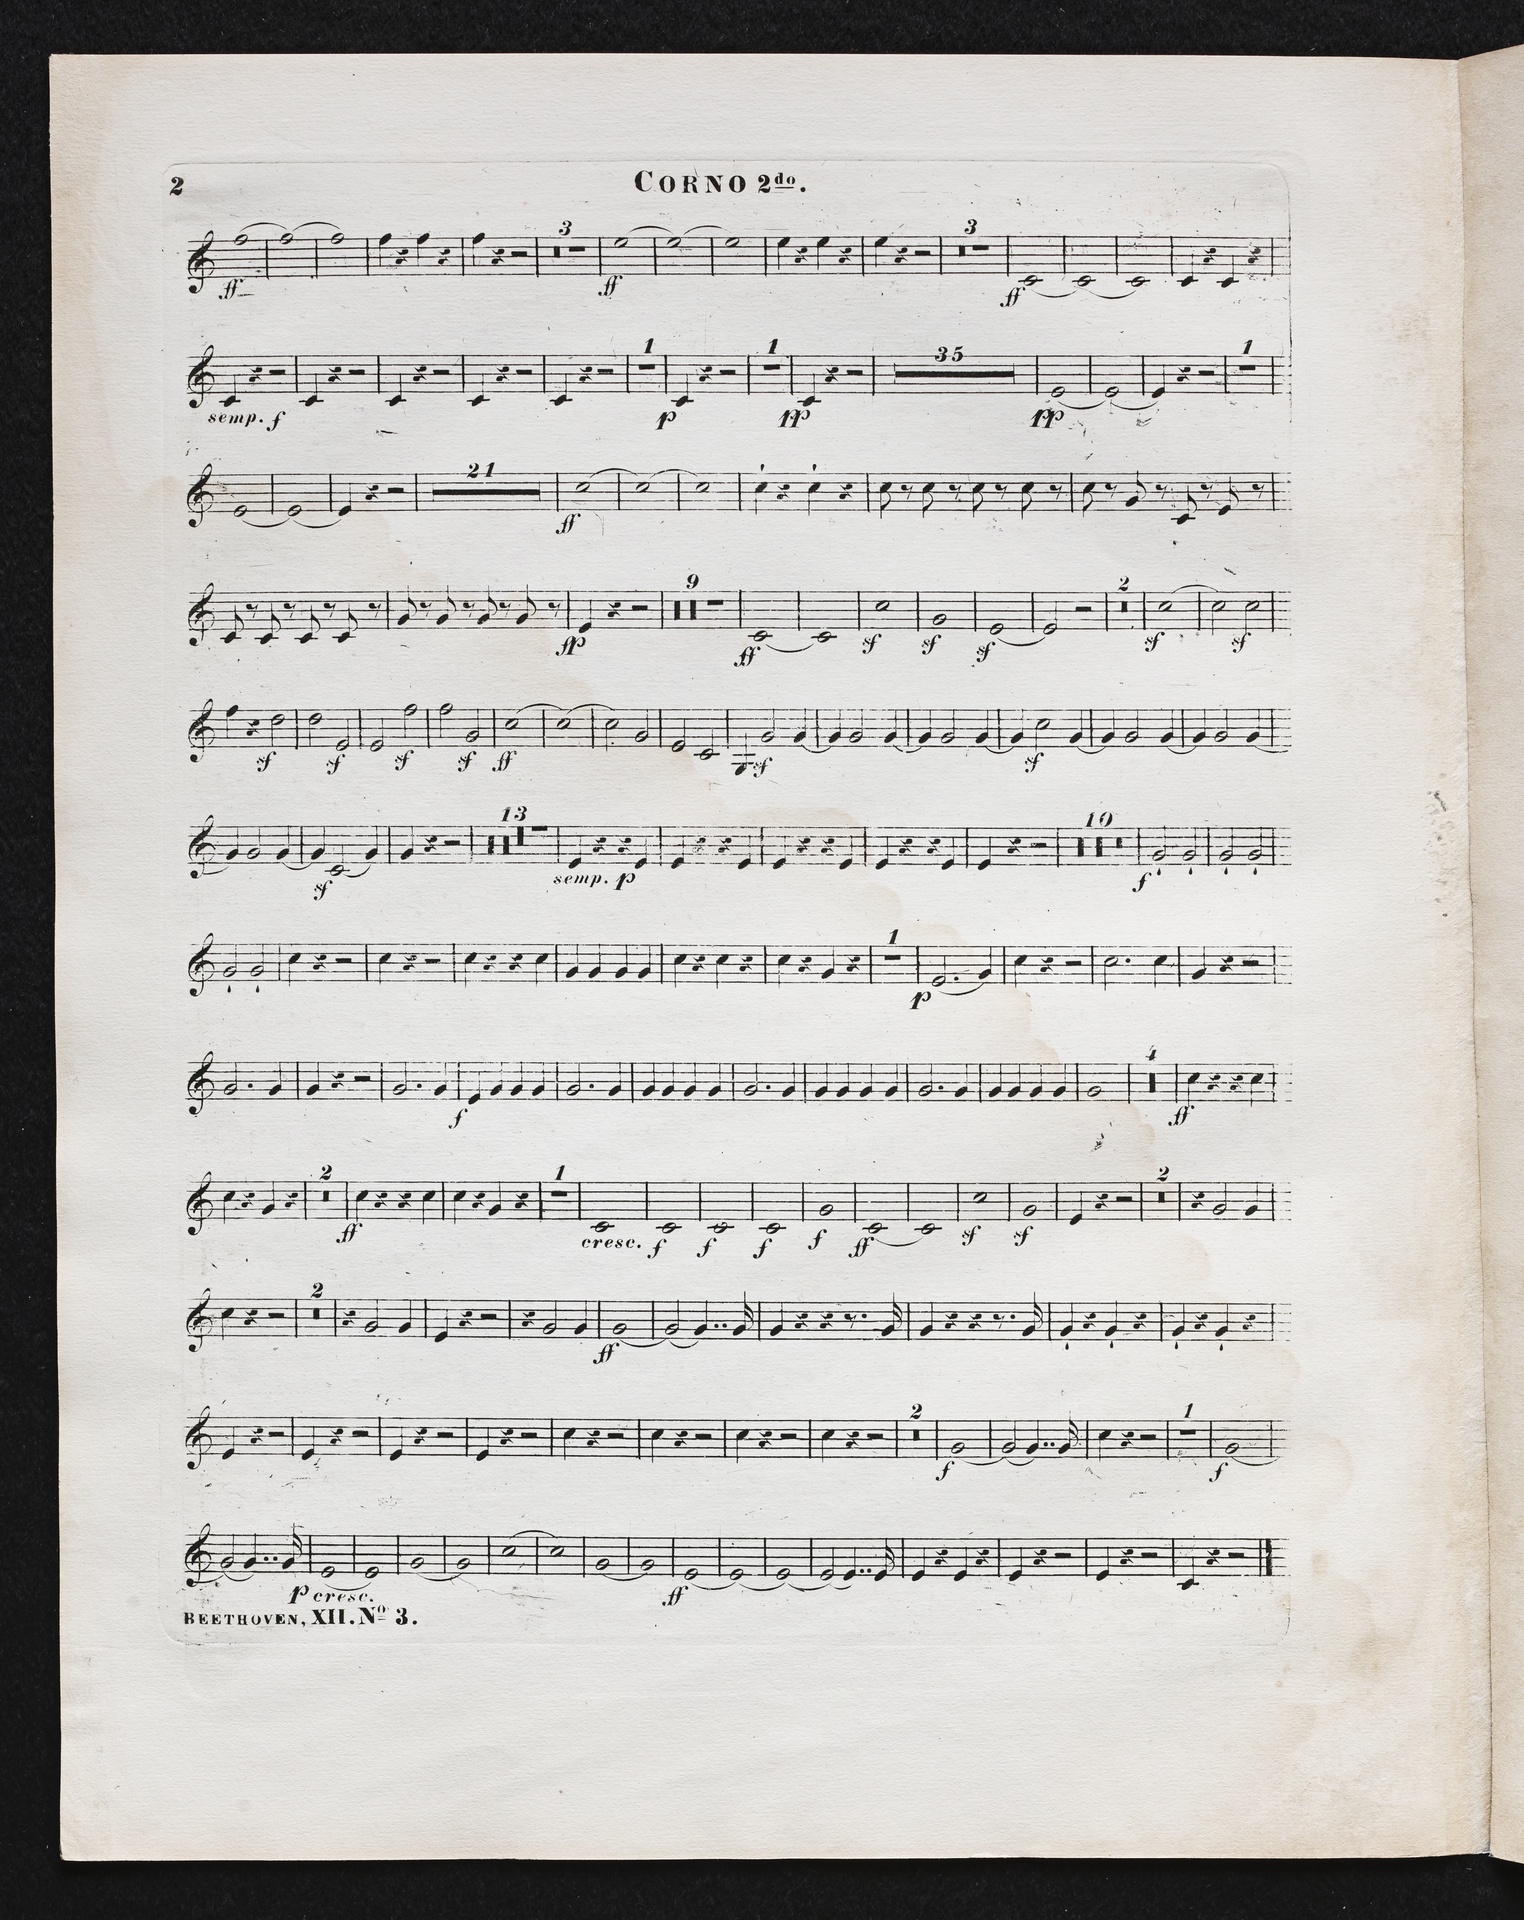 2
CORNO 2do.
3 3
ff ff ff
1 1 35 1
semp. f p pp pp
21
ff
9 2
fp ff sf sf sf sf sf
sf sf sf sf ff sf sf
13 10
sf semp. p f
1
p
4
f ff
2 1 2
ff cresc. f f f f ff sf sf
2
ff
2 1
f f
p cresc. ff
BEETHOVEN, XII. No 3.